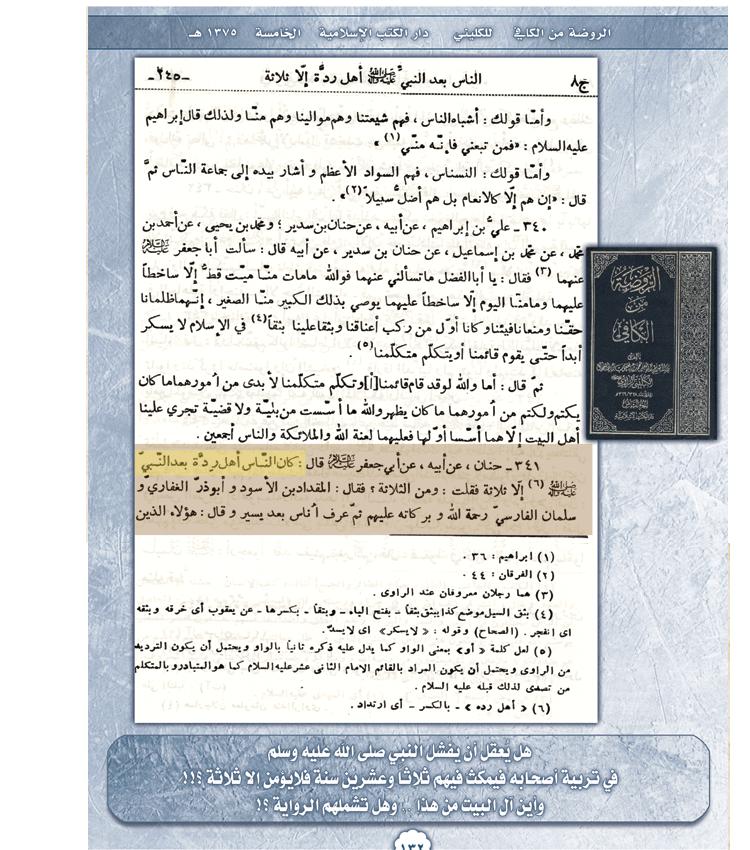 الروضة من الكافي للكليني دار الكتب الإسلامية الخامسة ١٣٧٥ هـ
ج٨ الناس بعد النبيّ ﷺ أهل ردّة إلّا ثلاثة -٢٤٥-
وأمّا قولك : أشباه الناس ، فهم شيعتنا وهم موالينا وهم منّا ولذلك قال إبراهيم
عليه السلام : «فمن تبعني فإنّه منّي (١) »
وأمّا قولك : النسناس ، فهم السواد الأعظم و أشار بيده إلى جماعة النّاس ثمَّ
قال : «إن هم إلّا كالانعام بل هم أضلُّ سبيلاً (٢)» .
٣٤٠ - عليُّ بن إبراهيم ، عن أبيه ، عن حنان بن سدير ؛ ومحمّد بن يحيى ، عن أحمد بن
محمّد ، عن محمّد بن إسماعيل ، عن حنان بن سدير ، عن أبيه قال : سألت أبا جعفر عليه السلام
عنهما (٣) فقال : يا أبا الفضل ما تسألني عنهما فوالله مامات منّا ميّت قطُّ إلّا ساخطاً
عليهما ومامنّا اليوم إلّا ساخطاً عليهما يوصي بذلك الكبير منّا الصغير ، إنّهما ظلمانا
حقّنا ومنعانا فيئنا وكانا أوّل من ركب أعناقنا وبثقا علينا بثقاً (٤) في الإسلام لا يسكر
أبداً حتّى يقوم قائمنا أو يتكلّم متكلّمنا (٥) .
ثمّ قال : أما والله لوقد قام قائمنا [أ] وتكلّم متكلّمنا لأ بدى من اُمورهما ما كان
يكتم ولكتم من اُمورهما ما كان يظهر والله ما أسّست من بليّة ولا قضيّة تجري علينا
أهل البيت إلّا هما أسّسا أوّلها فعليهما لعنة الله والملائكة والناس أجمعين .
٣٤١ - حنان ، عن أبيه ، عن أبي جعفر عليه السلام قال : كان النّاس أهل ردّة بعد النّبيّ
ﷺ (٦) إلّا ثلاثة فقلت : ومن الثلاثة ؟ فقال : المقداد بن الأسود و أبو ذرّ الغفاري و
سلمان الفارسيّ رحمة الله و بركاته عليهم ثمّ عرف اُناس بعد يسير و قال : هؤلاء الذين
(١) ابراهيم : ٣٦ .
(٢) الفرقان : ٤٤ .
(٣) هما رجلان معروفان عند الراوى .
(٤) بثق السيل موضع كذا يبثق بثقاً - بفتح الياء - وبثقاً - بكسرها - عن يعقوب أى خرقه وبثقه
اى انفجر . (الصحاح) وقوله : « لايسكر» اى لايسدّ .
(٥) لعل كلمة «أو» بمعنى الواو كما يدل عليه ذكره ثانياً بالواو ويحتمل أن يكون الترديد
من الراوى ويحتمل أن يكون المراد بالقائم الامام الثانى عشر عليه السلام كما هو المتبادر وبالمتكلم
من تصدى لذلك قبله عليه السلام .
(٦) « أهل رده » - بالكسر - أى ارتداد .
الروضة
من
الكافي
هل يُعقل أن يفشل النبي صلى الله عليه وسلم
في تربية أصحابه فيمكث فيهم ثلاثاً وعشرين سنة فلايؤمن الا ثلاثة ؟!!
وأين آل البيت من هذا .. وهل تشملهم الرواية ؟!
١٣٢